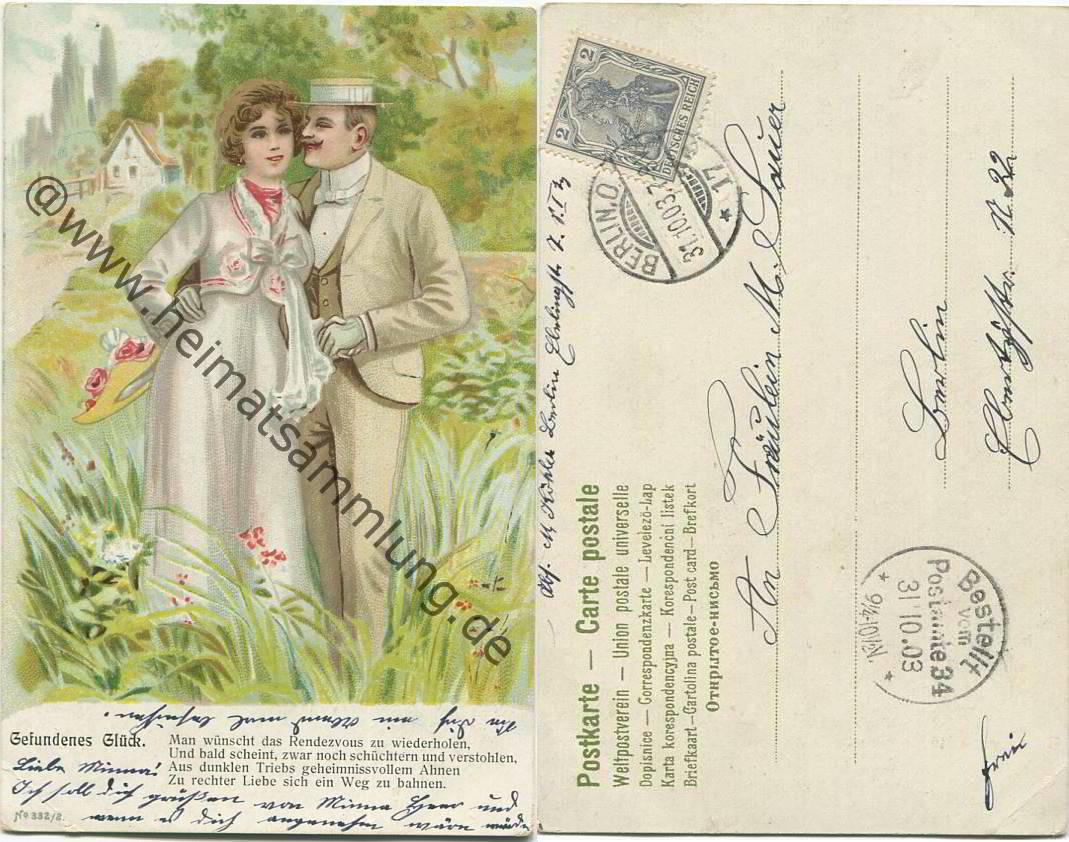 @www.heimatsammlung.de
Gefundenes Glück.
Man wünscht das Rendezvous zu wiederholen,
Und bald scheint, zwar noch schüchtern und verstohlen,
Aus dunklen Triebs geheimnissvollem Ahnen
Zu rechter Liebe sich ein Weg zu bahnen.
Liebe Minna!
Ich soll dich grüßen von Minna und
wenn es dich angenehm wäre würde
No 332/2.
Postkarte — Carte postale
Weltpostverein — Union postale universelle
Dopisnice — Correspondenzkarte — Levelezö-Lap
Karta korespondencyjna — Korespondenčni listek
Briefkaart — Cartolina postale — Post card — Brefkort
Открытое-письмо
2 2
DEUTSCHES REICH
BERLIN.O.
31.10.03
17
Abs. M. Köhler Berlin
An Fräulein M. Sauer
Berlin
N. 22
Bestellt
vom
Postamte 34
31 10.03
frei